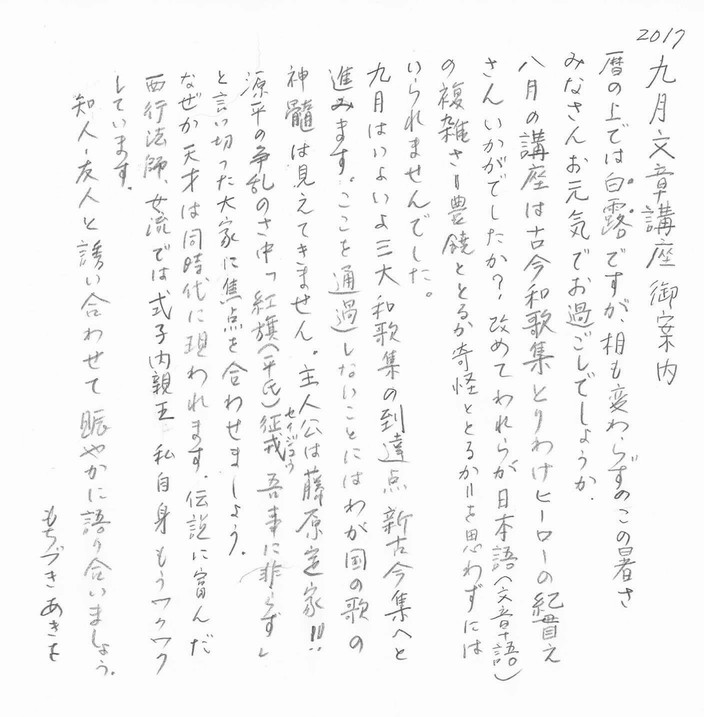 2017
九月文章講座御案内
暦の上では白露ですが、相も変わらずのこの暑さ
みなさんお元気でお過ごしでしょうか。
八月の講座は古今和歌集とりわけヒーローの紀貫之
さんいかがでしたか?、改めてわれらが日本語(文章語)
の複雑さ=豊饒ととるか奇怪ととるか=を思わずには
いられませんでした。
九月はいよいよ三大和歌集の到達点 新古今集へと
進みます。ここを通過しないことにはわが国の歌の
神髄は見えてきません。主人公は藤原定家!!
源平の争乱のさ中「紅旗(平氏)征戎セイジュウ 吾事に非らず」
と言い切った大家に焦点を合わせましょう。
なぜか天才は同時代に現われます。伝説に富んだ
西行法師、女流では式子内親王 私自身もうワクワク
しています。
知人・友人と誘い合わせて賑やかに語り合いましょう。
もちづきあきを